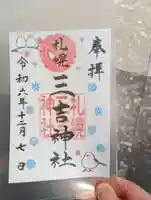 奉拝
札幌
三吉神社
令和六年十二月七日